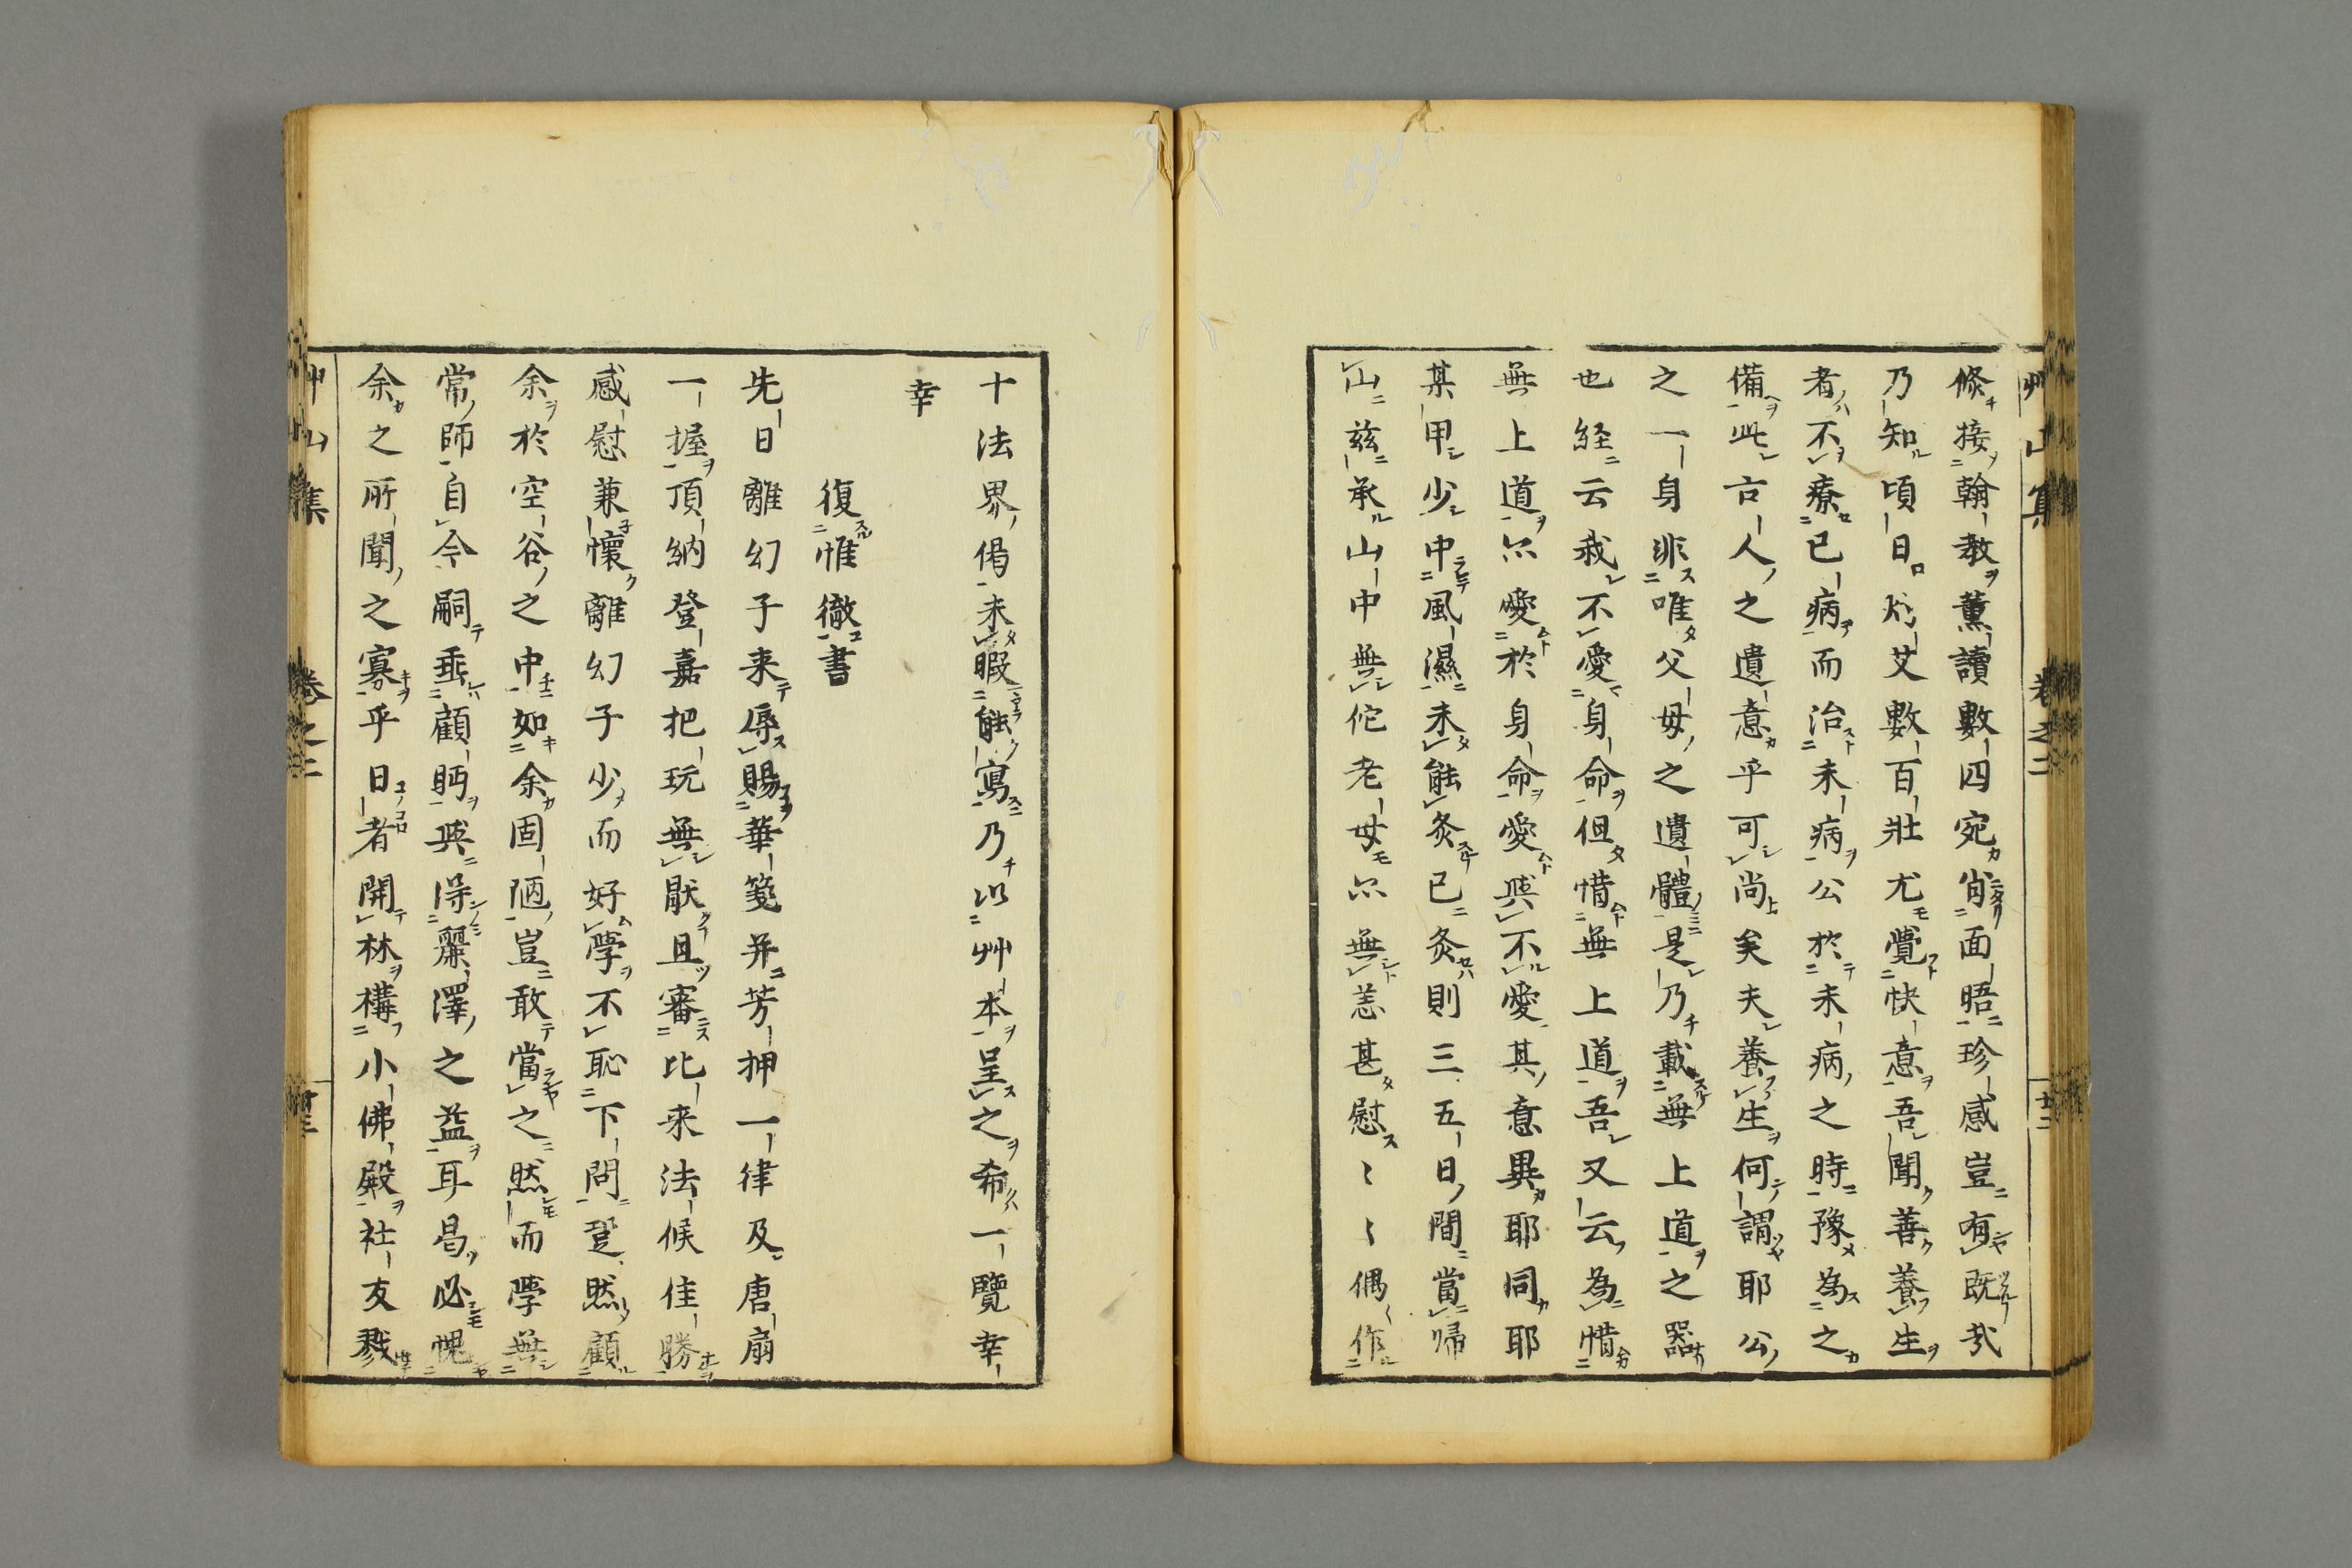 艸山集 卷之二 廿二
倐接翰教薫讀數四宛肖面晤珍感豈有既㢤
乃知頃日灼艾數百壯尤覺快意吾聞善養生
者不療已病而治未病公於未病之時豫為之
備此古人之遺意乎可尚矣夫養生何謂耶公
之一身非唯父母之遺體是乃載無上道之器
也経云我不愛身命但惜無上道吾又云為惜
無上道亦愛於身命愛與不愛其意異耶同耶
某甲少中風濕未能灸已灸則三五日間當帰
山茲承山中無佗老母亦無恙甚慰〻〻偶作
十法界偈未暇能寫乃以艸本呈之希一覽幸
幸
復惟徹書
先日離幻子来辱賜華箋并芳押一律及唐扇
一握頂納登嘉把玩無厭且審比来法候佳勝
感慰兼懷離幻子少而好學不恥下問跫然顧
余於空谷之中如余固陋豈敢當之然而學無
常師自今嗣垂顧眄與得麗澤之益耳曷必愧
余之所聞之寡乎日者開林構小佛殿社友戮
艸山集 卷之二 廿三